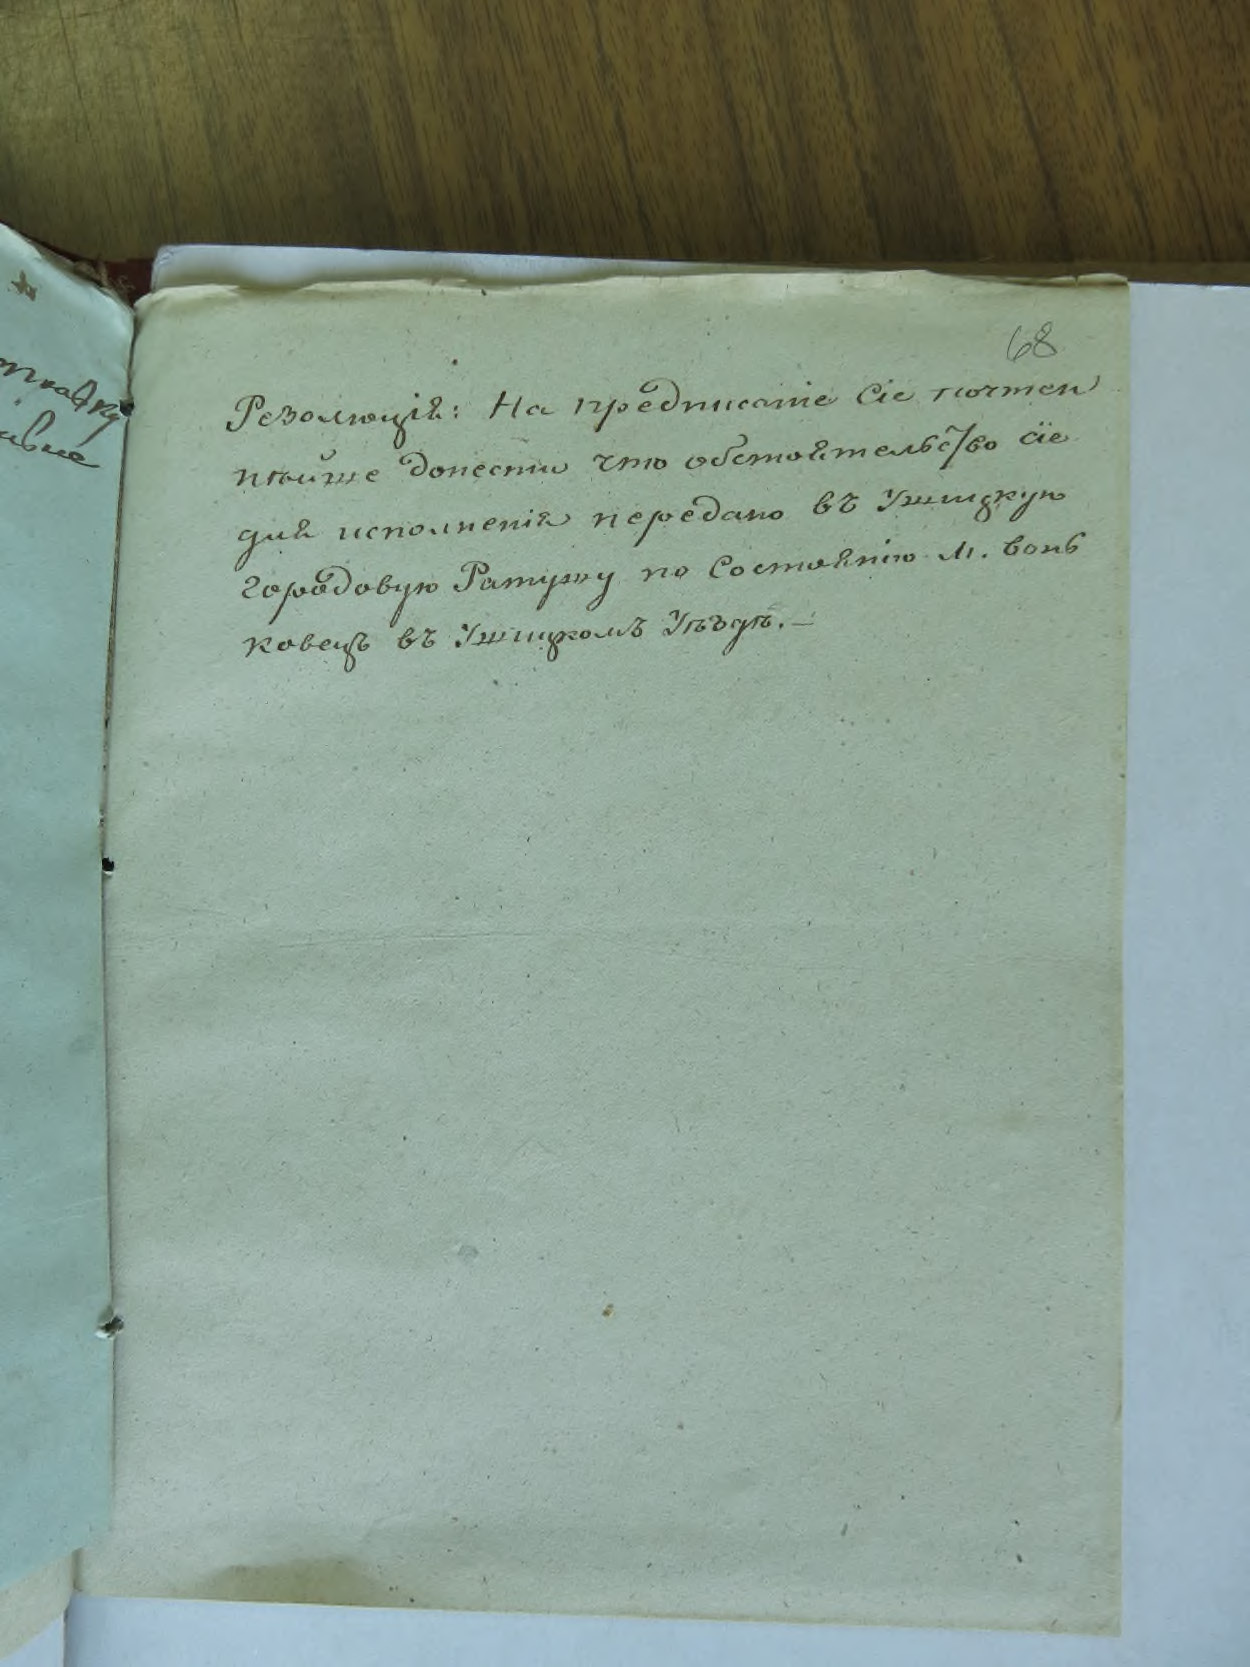 68
Резолюція: На предписаніе сіе почтен
нѣйше донести что обстоятельство сіе
для исполненія передано въ Ушицкую
городовую Ратушу по Состоянію м. Вонь
ковецъ въ Ушицкомъ Уѣздѣ.—